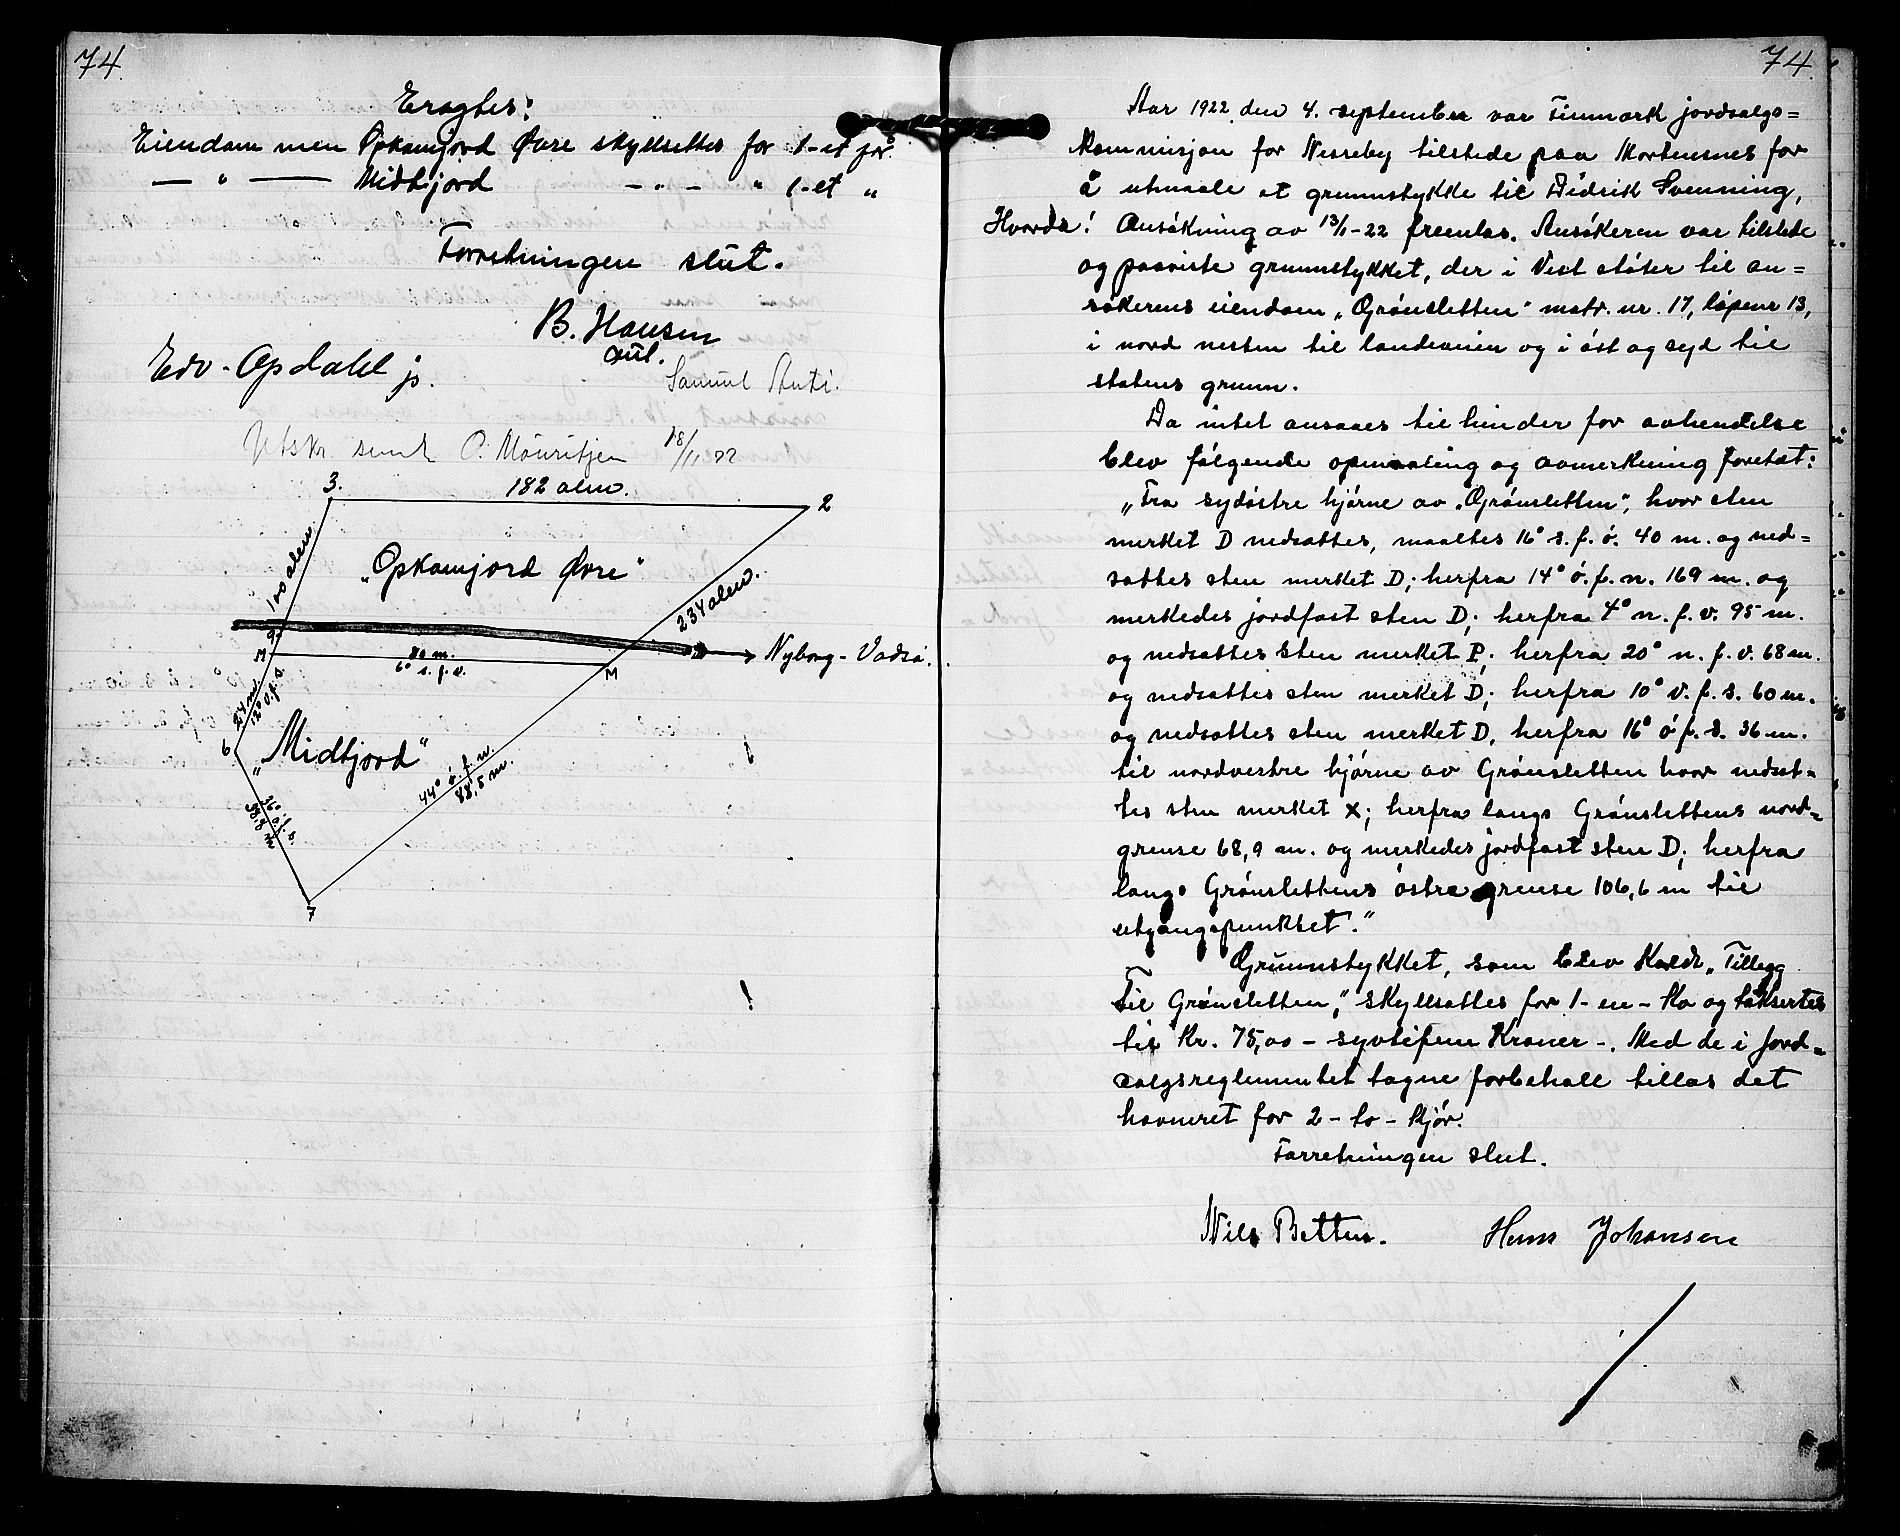 74.
Eragtes:
Eiendommen Opkamjord Øvre skyllsettes for 1-et jør.
— " — Midtjord — . . — " 1-et "
Forretningen slut.
B. Hansen
Edv. Opdahl jr.
Samuel Anti.
Utskr. sendt O. Mouritzen 18/11 22
3.
182 alen.
2
100 alen.
"Opkamjord Øvre"
234 alen.
9.
M
80 m.
6° s. f. v.
M
Nyborg - Vadsø.
24 m.
12° v. f. s.
6
"Midtjord"
44° ö. f. n.
88,5 m.
7
74.
Aar 1922 den 4. september var Finmark jordsalgs=
kommisjon for Nesseby tilstede paa Mortensnes for
å utmaale et grunnstykke til Didrik Svenning,
Hvorda! Ansökning av 13/1-22 freml̶as. Ansökeren var tilstede
og paaviste grunnstykket, der i Vest stöter til an=
sökerens eiendom „Grönsletten" matr. nr. 17, löpenr 13,
i nord nesten til landeveien og i öst og syd til
statens grunn.
Da intet ansaaes til hinder for avhendelse
blev fölgende opmaaling og avmerkning foretat:
„Fra sydöstre hjörne av „Grönsletten", hvor sten
merket D nedsattes, maaltes 16° s. f. ö. 40 m. og ned=
sattes sten merket D; herfra 14° ö. f. n. 169 m. og
merkedes jordfast sten D; herfra 4° n. f. v. 95 m.
og nedsattes sten merket D; herfra 20° n. f. v. 68 m.
og nedsattes sten merket D; herfra 10° v. f. s. 60 m.
og nedsattes sten merket D, herfra 16° ö f. s. 36 m.
til nordvestre hjörne av Grönsletten hvor nedsat=
tes sten merket x; herfra langs Grönslettens nord=
grense 68,9 m. og merkedes jordfast sten D; herfra
langs Grönslettens östre grense 106,6 m til
utgangspunktet."
Grunnstykket, som blev kaldt „Tillegg
til Grönsletten," skyllsattes for 1-en-ko og taksertes
til kr. 75,00 - syvtifem kroner -. Med de i jord=
salgsreglementet tagne forbehall tillas det
havneret for 2-to-kjör.
Forretningen slut.
Nils Betten. Hans Johansen